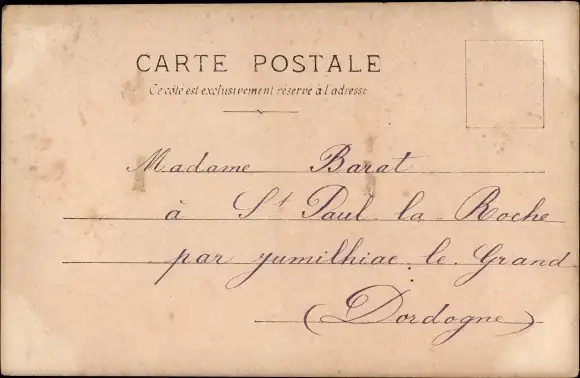 CARTE POSTALE
Ce côté est exclusivement réservé à l'adresse
Madame Barat
à St Paul la Roche
par jumilhiac le Grand
(Dordogne)